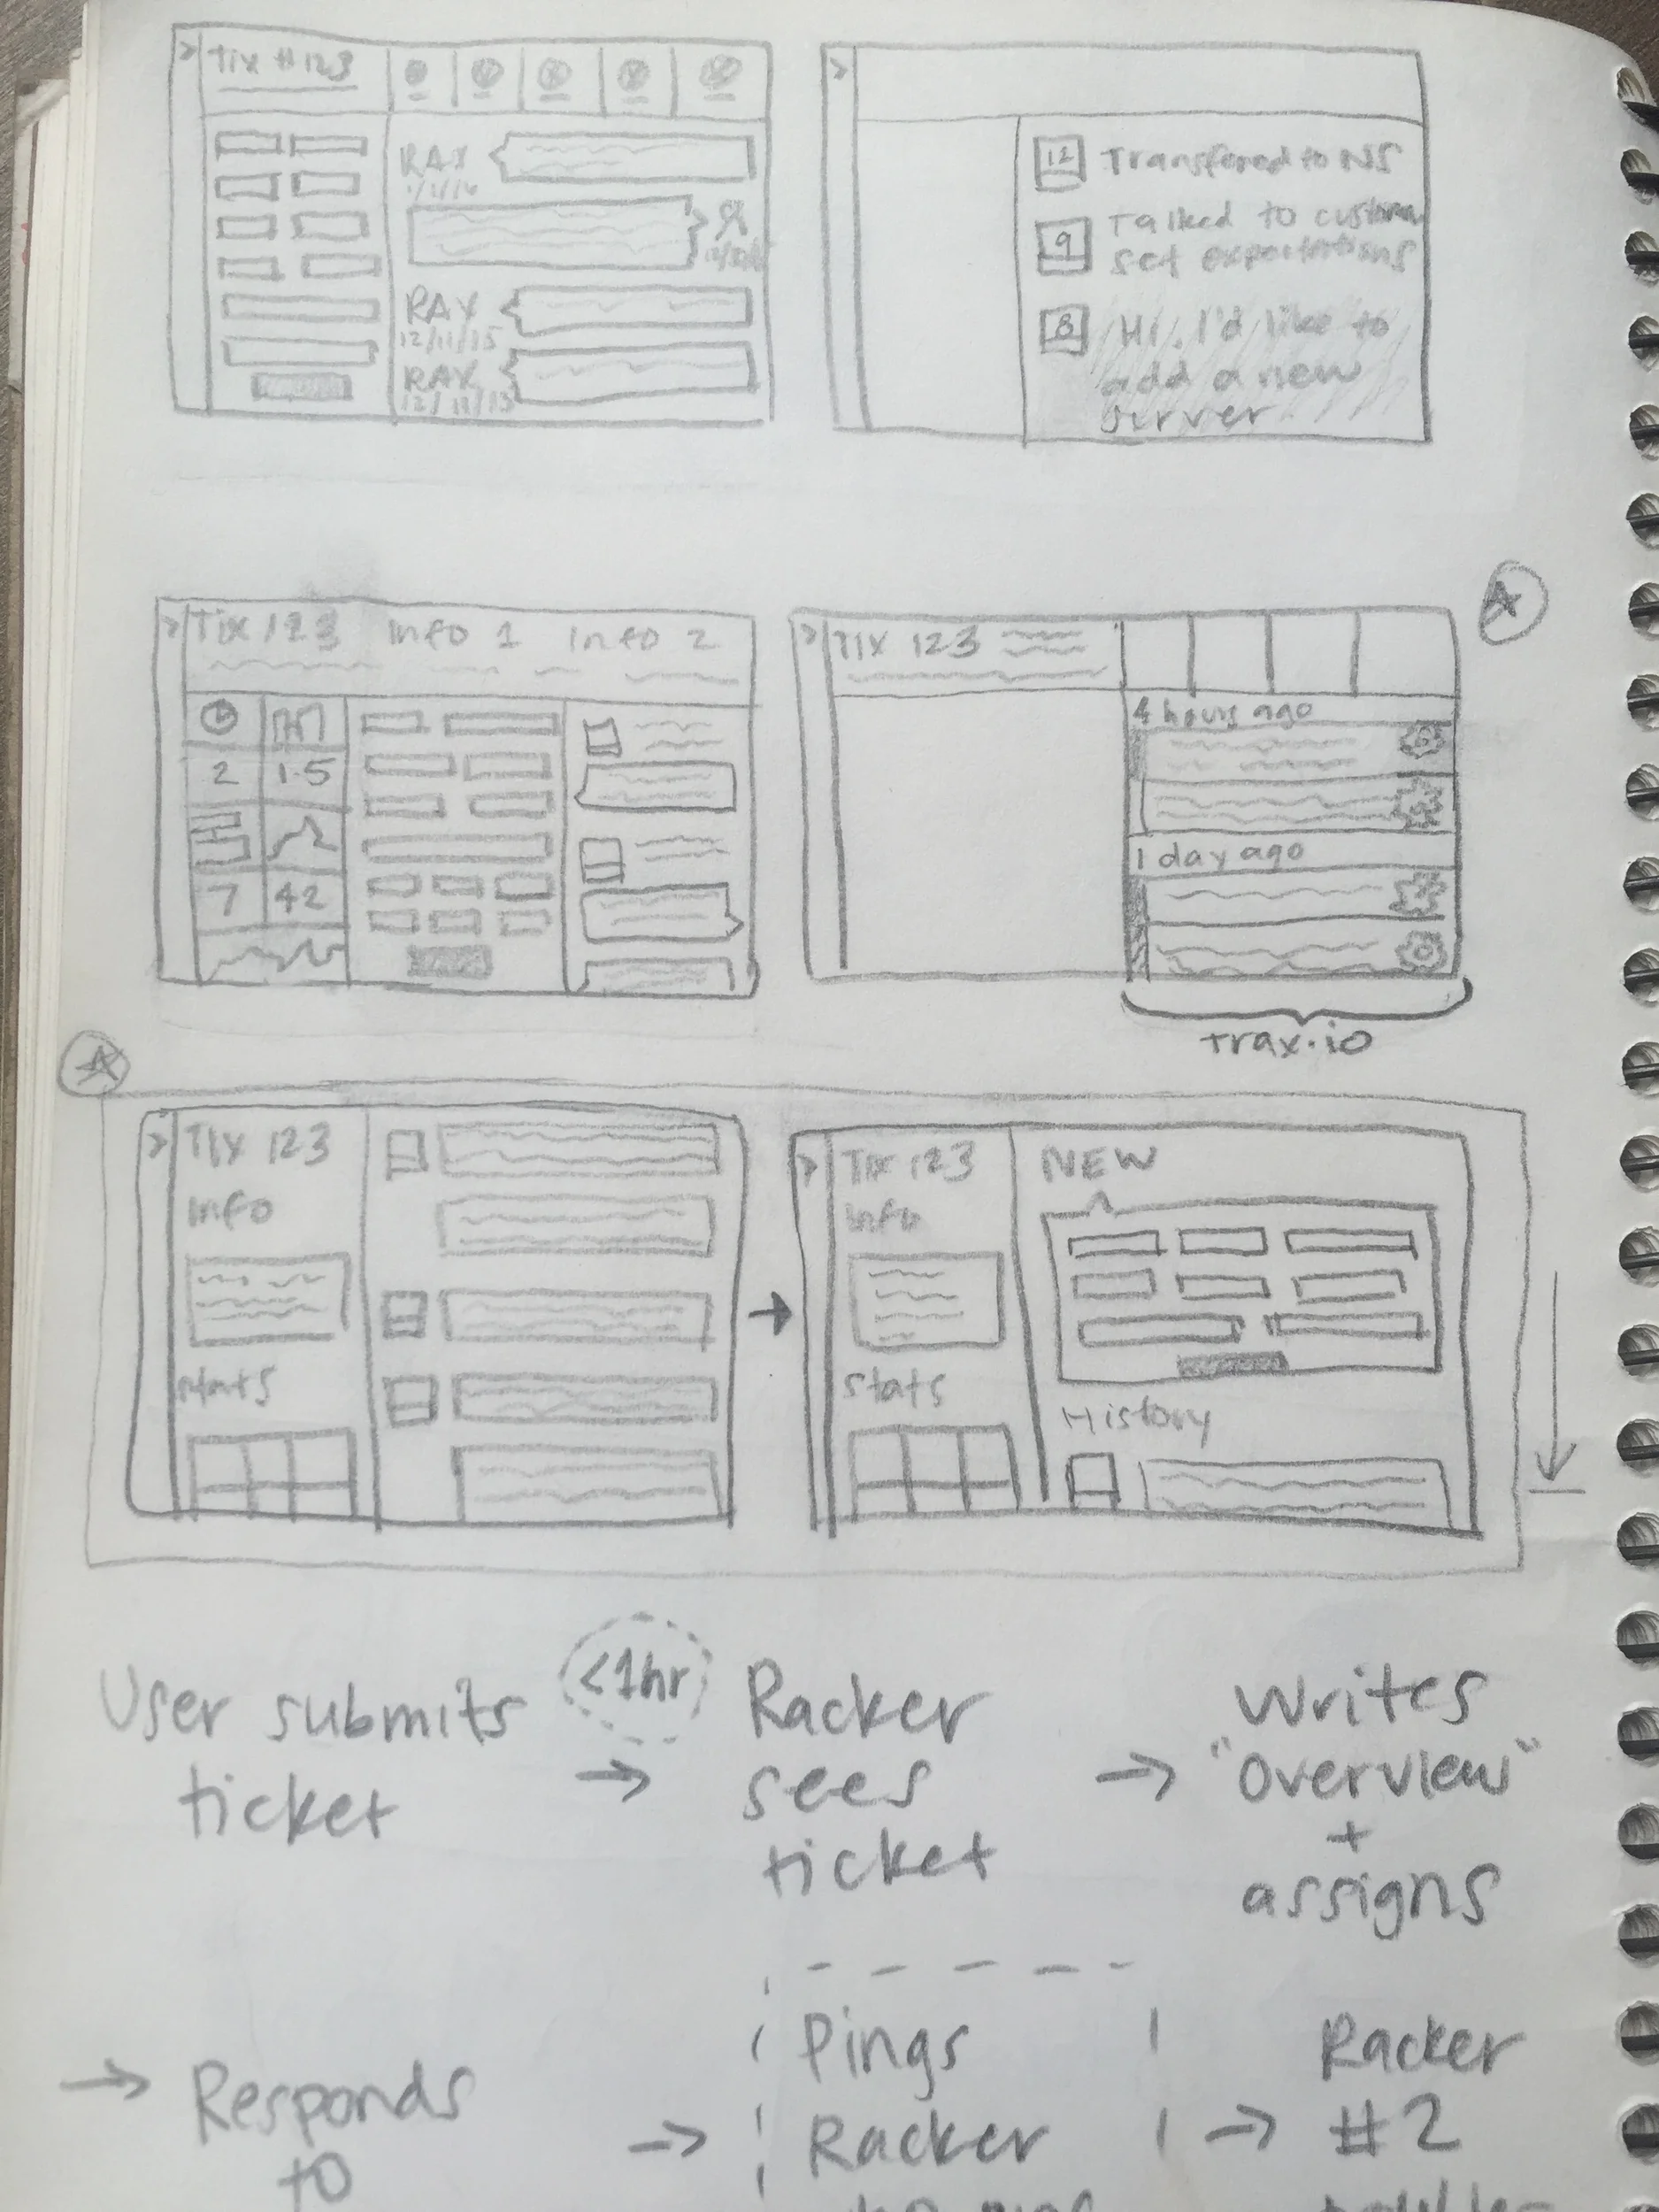 Tix #123
RAX
1/1/16
RAX
12/11/15
RAX
12/11/15
12 Transfered to NS
9 Talked to custom
set expectations
8 Hi, I'd like to
add a new
server
Tix 123 Info 1 Info 2
2 1.5
7 42
Tix 123
4 hours ago
1 day ago
trax.io
Tix 123
Info
Stats
Tix 123
Info
Stats
NEW
History
User submits
ticket
<1hr
→
Racker
sees
ticket
→
Writes
"Overview"
+
assigns
→ Responds
to
→
Pings
Racker
→
Racker
#2